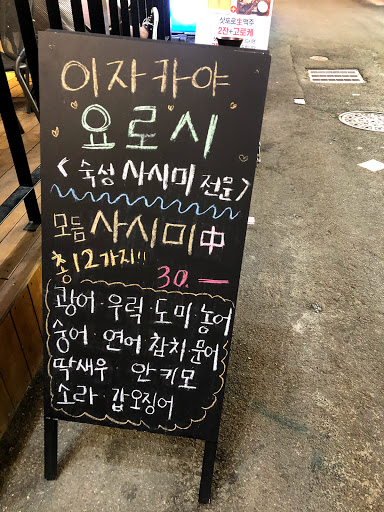 삿포로生맥주
2잔+고로케
이자카야
요로시
<숙성 사시미 전문>
모듬 사시미 中
총 12가지!!
30.—
광어·우럭·도미·농어
숭어·연어·참치·문어
딱새우·안키모
소라·갑오징어